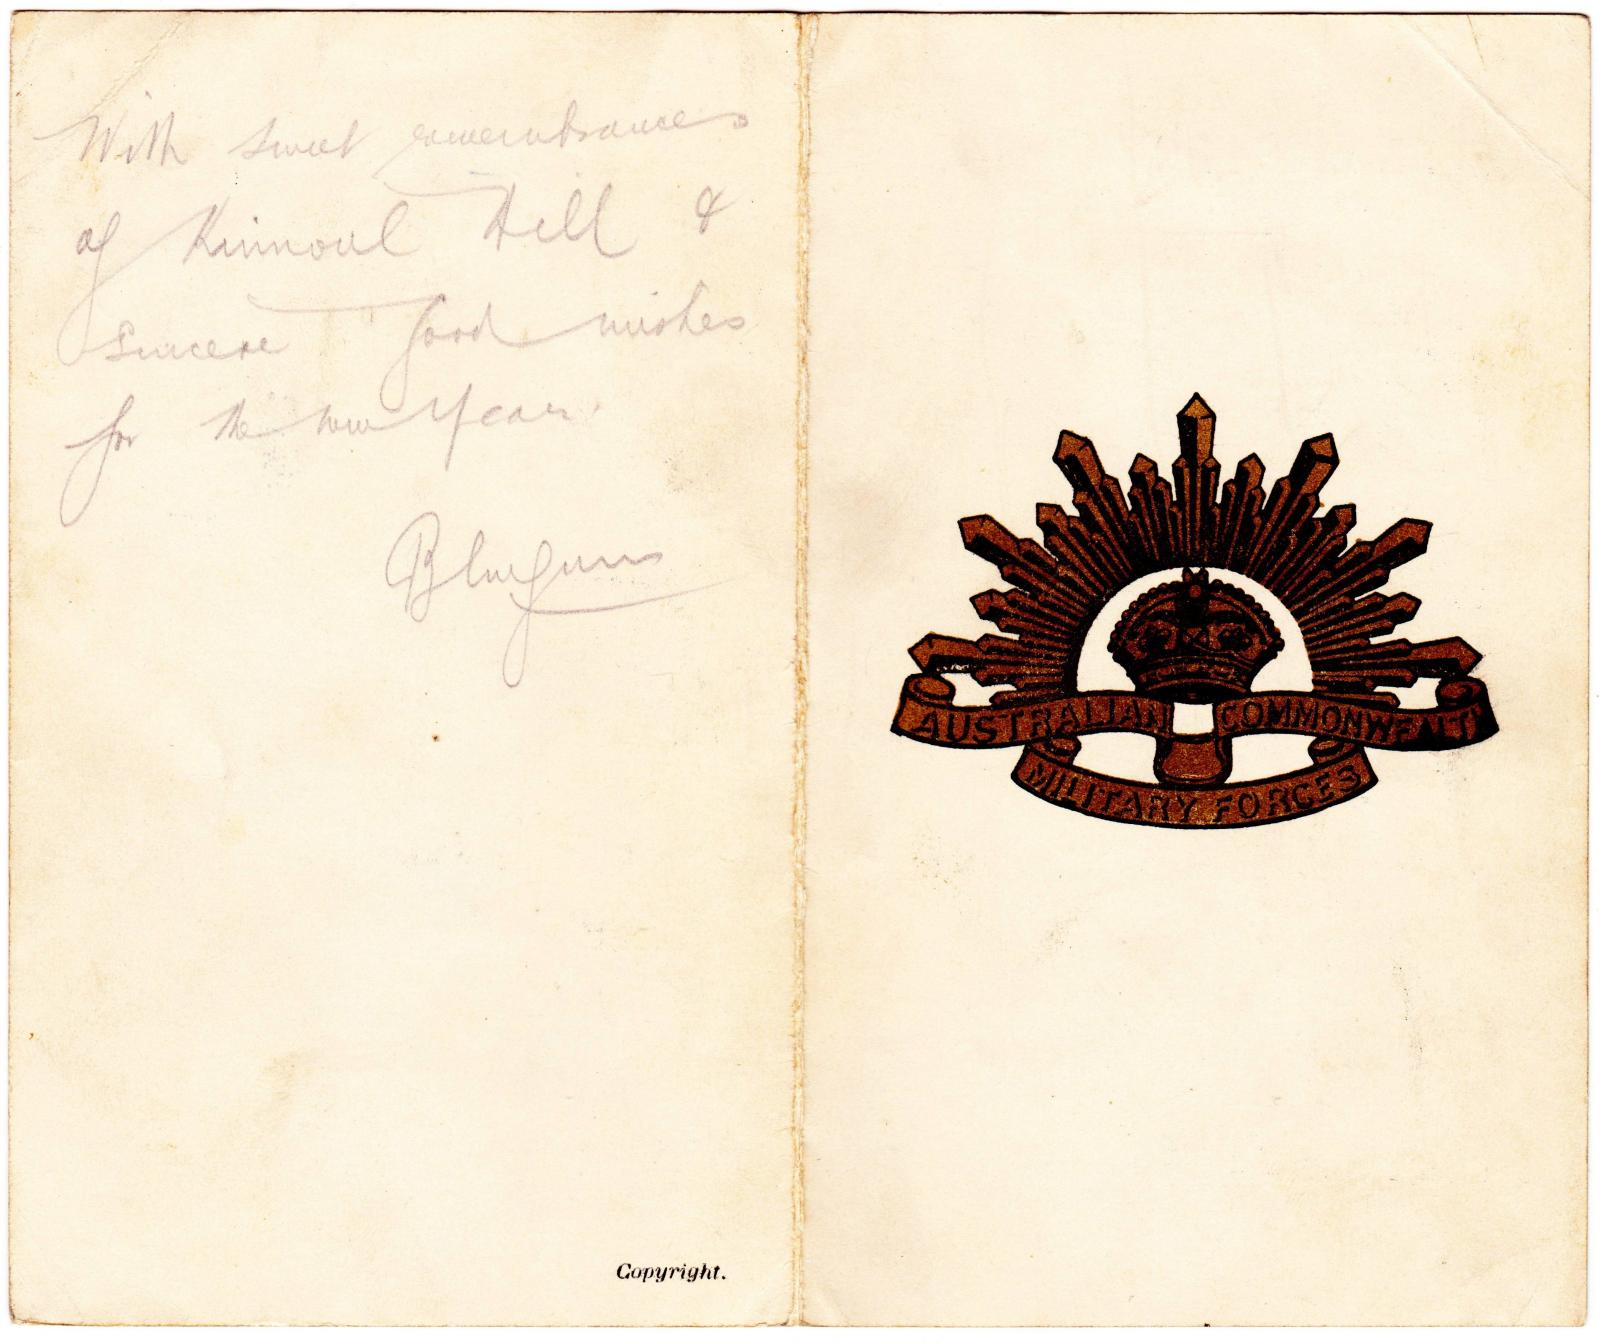 With sweet remembrances
of Kinnoul Hill &
sincere good wishes
for the new Year.
Bluegum
Copyright.
AUSTRALIAN COMMONWEALTH
MILITARY FORCES